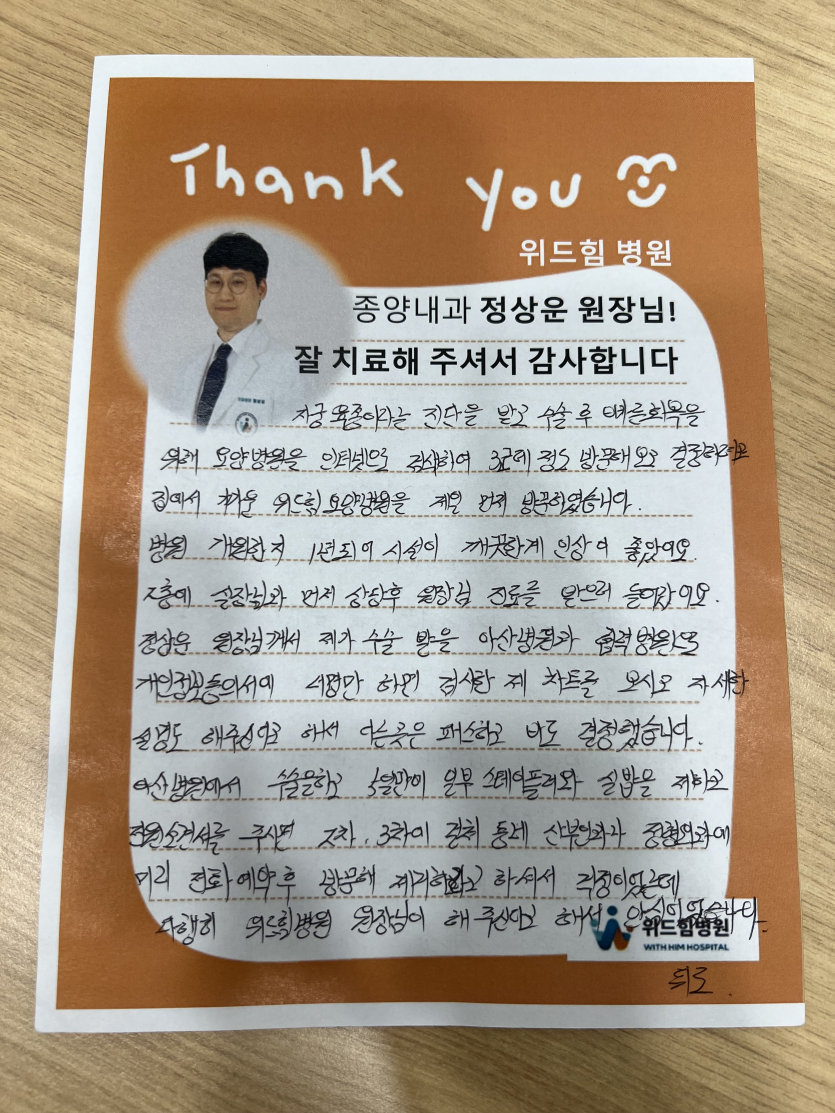 Thank you
위드힘 병원
종양내과 정상운 원장님!
잘 치료해 주셔서 감사합니다
자궁육종이라는 진단을 받고 수술 후 빠른회복을
위해 요양병원을 인터넷으로 검색하여 3군데 정도 방문해보고 결정하려고
집에서 가까운 위드힘 요양병원을 제일 먼저 방문하였습니다.
병원 개원한지 1년되어 시설이 깨끗한게 인상이 좋았어요.
2층에 실장님과 먼저 상담후 원장님 진료를 받으러 들어갔어요.
정상운 원장님께서 제가 수술 받을 아산병원과 협력병원으로
개인정보동의서에 서명만 하면 검사한 제 차트를 보시고 자세한
설명도 해주신다고 해서 다른곳은 패스하고 바로 결정했습니다.
아산병원에서 수술을하고 5일만에 일부 스테이플러와 실밥을 제하고
전원소견서를 주시면 2차, 3차에 걸쳐 동네 산부인과나 정형외과에
미리 전화예약후 방문해 제거하라고 하셔서 걱정이었는데
다행히 위드힘병원 원장님이 해 주신다고 해서 안심이었습니다.
위드힘병원
WITH HIM HOSPITAL
뒤로.